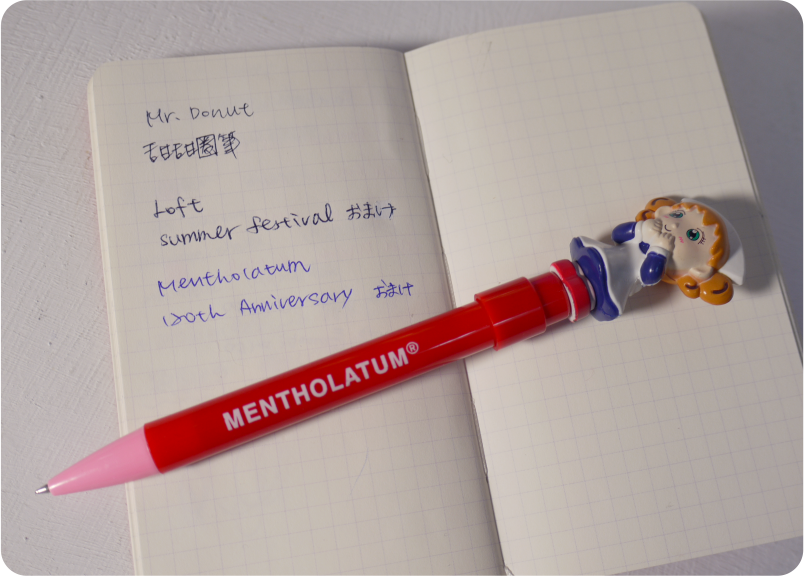 Mr. Donut
甜甜圈筆
Loft
summer festival おまけ
Mentholatum
120th Anniversary おまけ
MENTHOLATUM®